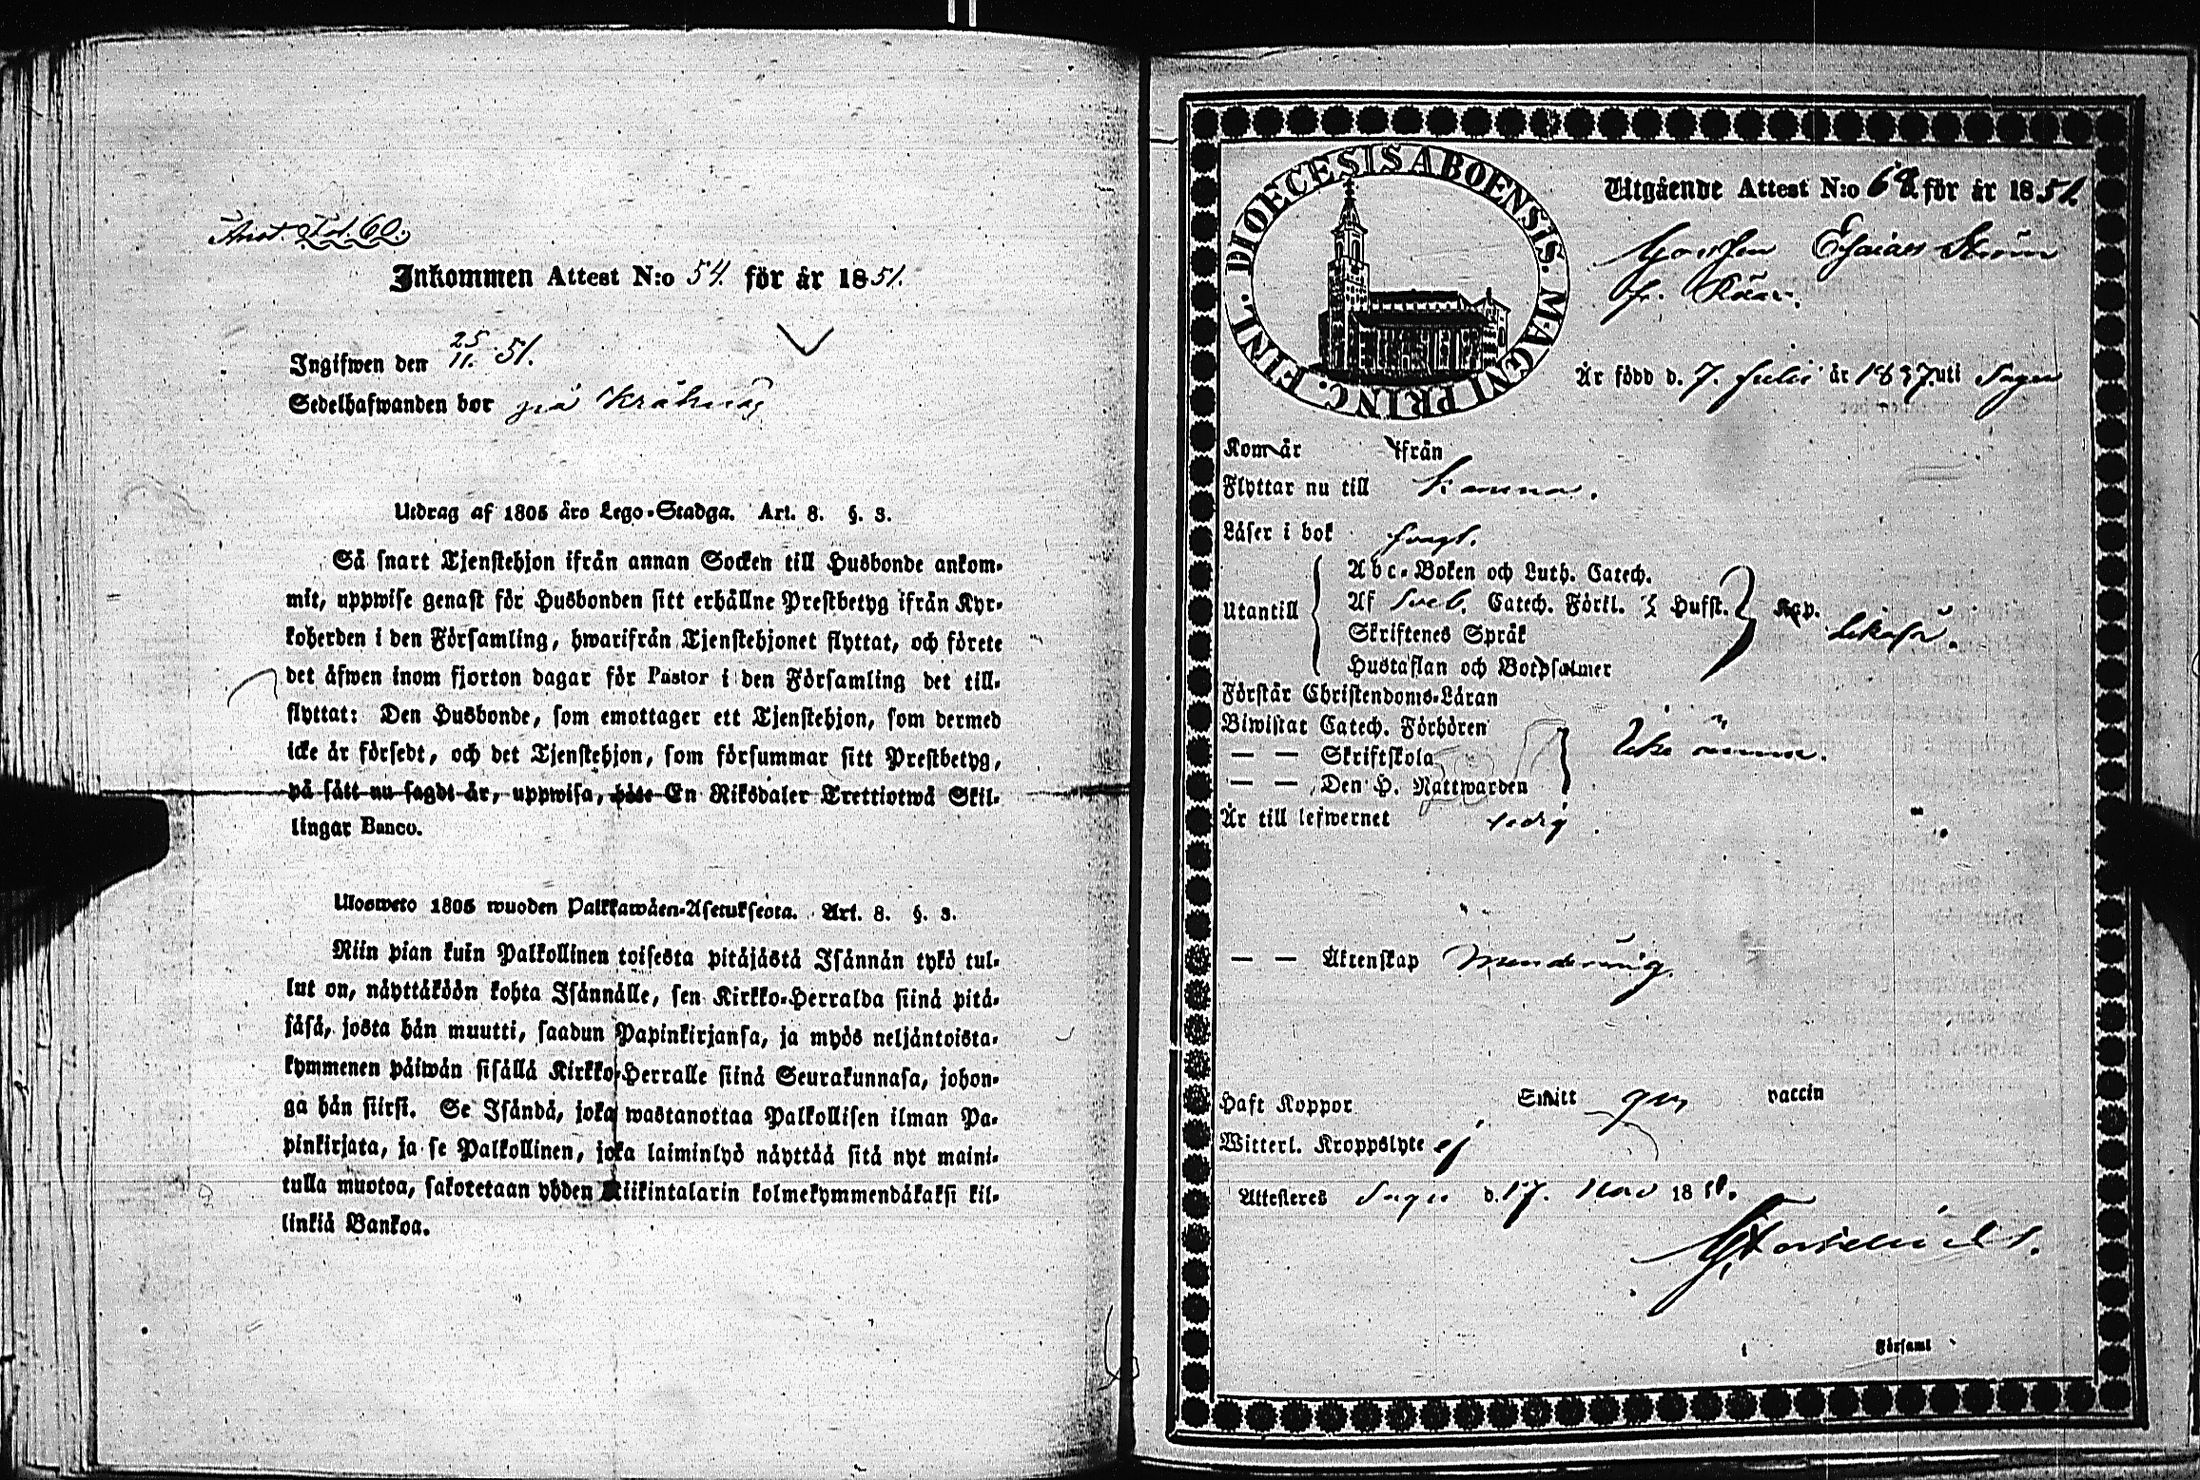 Fol. 60.
Inkommen Attest N:o 54. för år 1851.
Ingifwen den 25/11. 51.
Sedelhafwanden bor på Kråknäs
Utdrag af 1805 års Lego-Stadga. Art. 8. §. 3.
Så snart Tjenstehjon ifrån annan Socken till Husbonde ankom-
mit, uppwise genast för Husbonden sitt erhållne Prestbetyg ifrån Kyr-
koherden i den Församling, hwarifrån Tjenstehjonet flyttat, och förete
det äfwen inom fjorton dagar för Pastor i den Församling det till-
flyttat: Den Husbonde, som emottager ett Tjenstehjon, som dermed
icke är försedt, och det Tjenstehjon, som försummar sitt Prestbetyg,
på sätt nu sagdt är, uppwisa, böte En Riksdaler Trettiotwå Skil-
lingar Banco.
Ulosweto 1805 wuoden Palkkawäen-Asetuksesta. Art. 8. §. 3.
Niin pian kuin Palkollinen toisesta pitäjästä Isännän tykö tul-
lut on, näyttäköön kohta Isännälle, sen Kirkko-Herralda siinä pitä-
jäsä, josta hän muutti, saadun Papinkirjansa, ja myös neljäntoista-
kymmenen päiwän sisällä Kirkko-Herralle siinä Seurakunnasa, johon-
ga hän siirsi. Se Isändä, joka wastanottaa Palkollisen ilman Pa-
pinkirjata, ja se Palkollinen, joka laiminlyö näyttää sitä nyt maini-
tulla muotoa, sakotetaan yhden Riikintalarin kolmekymmendäkaksi kil-
linkiä Bankoa.
DIOECESIS ABOENSIS. MAGNI PRINC. FINL.
Utgående Attest N:o för år 1851.
Gossen Esaias
fr.
Är född d. 7. Julii år 1837. uti Sagu
Kom år ifrån
Flyttar nu till
Läser i bok
Utantill
Abc-Boken och Luth. Catech.
Af Sveb. Catech. Förkl. Husft. Kap.
Skriftenes Språk
Hustaflan och Botpsalmer
Förstår Christendoms-Läran
Biwistat Catech. Förhören
— — Skriftskola
— — Den H. Nattwarden
Icke ännu.
Är till lefwernet
— — Äktenskap Minderårig.
Haft Koppor Smitt gm vaccin
Witterl. Kroppslyte ej
Attesteras Sagu d. 17. Nov 1851.
i Församl